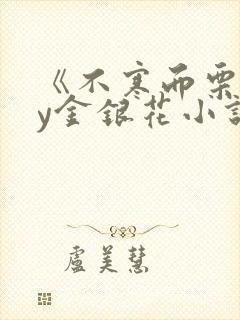 《不寒而栗
y金银花小說
盧美慧